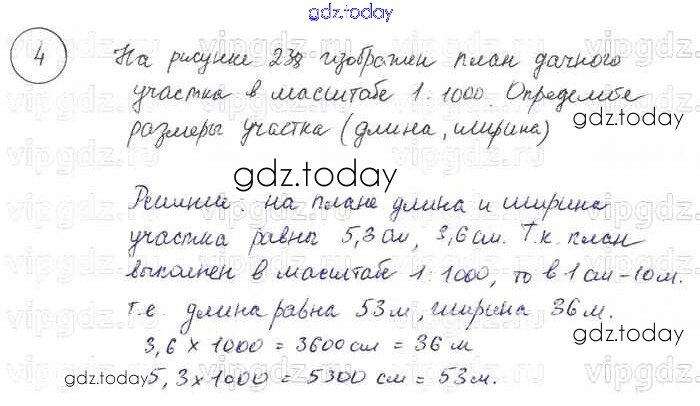 gdz.today
4
На рисунке 238 изображен план дачного
участка в масштабе 1:1000. Определите
размеры участка (длина, ширина)
gdz.today
gdz.today
Решение: на плане длина и ширина
участка равны 5,3 см, 3,6 см. Т.к. план
выполнен в масштабе 1:1000, то в 1 см - 10 м.
т.е. длина равна 53 м, ширина 36 м.
3,6 × 1000 = 3600 см = 36 м
gdz.today
5,3 × 1000 = 5300 см = 53 м.